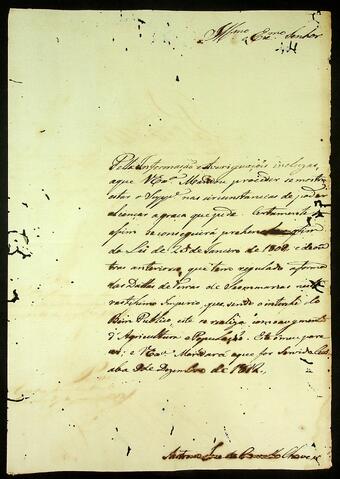 Illmo e Exmo Senhor
Pella Informação e Averiguaçoĩs incluzas,
aque VExa. Mandou proceder se mostra
estar o Suppe. nas circunstancias de poder
alcançar a graça que pede. Certamente
asim se conseguirá o fim
da Lei de 25 de Janeiro de 1809, e de ou
tras anteriores, que tem regulado a forma
das Datas de Terras de Sesmarias neste
vastissimo Imperio, que sendo o intento do
Bem Publico, este se realiza com o augmento
d' Agricultura e População. Este o meu pare
cer; e VExa. Mandará o que for Servido. Cui
abá 9 de Dezembro de 1824.
Antonio Joze de Carvalho Chaves